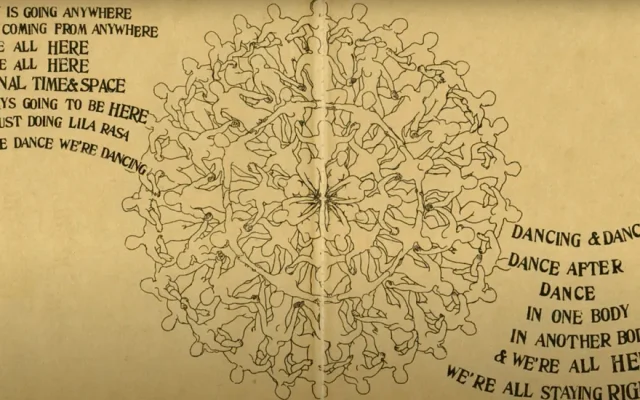 IS GOING ANYWHERE
COMING FROM ANYWHERE
ALL HERE
ALL HERE
TIME&SPACE
GOING TO BE HERE
DOING LILA RASA
DANCE WE'RE DANCING
DANCING &
DANCE AFTER
DANCE
IN ONE BODY
IN ANOTHER
& WE'RE ALL
WE'RE ALL STAYING